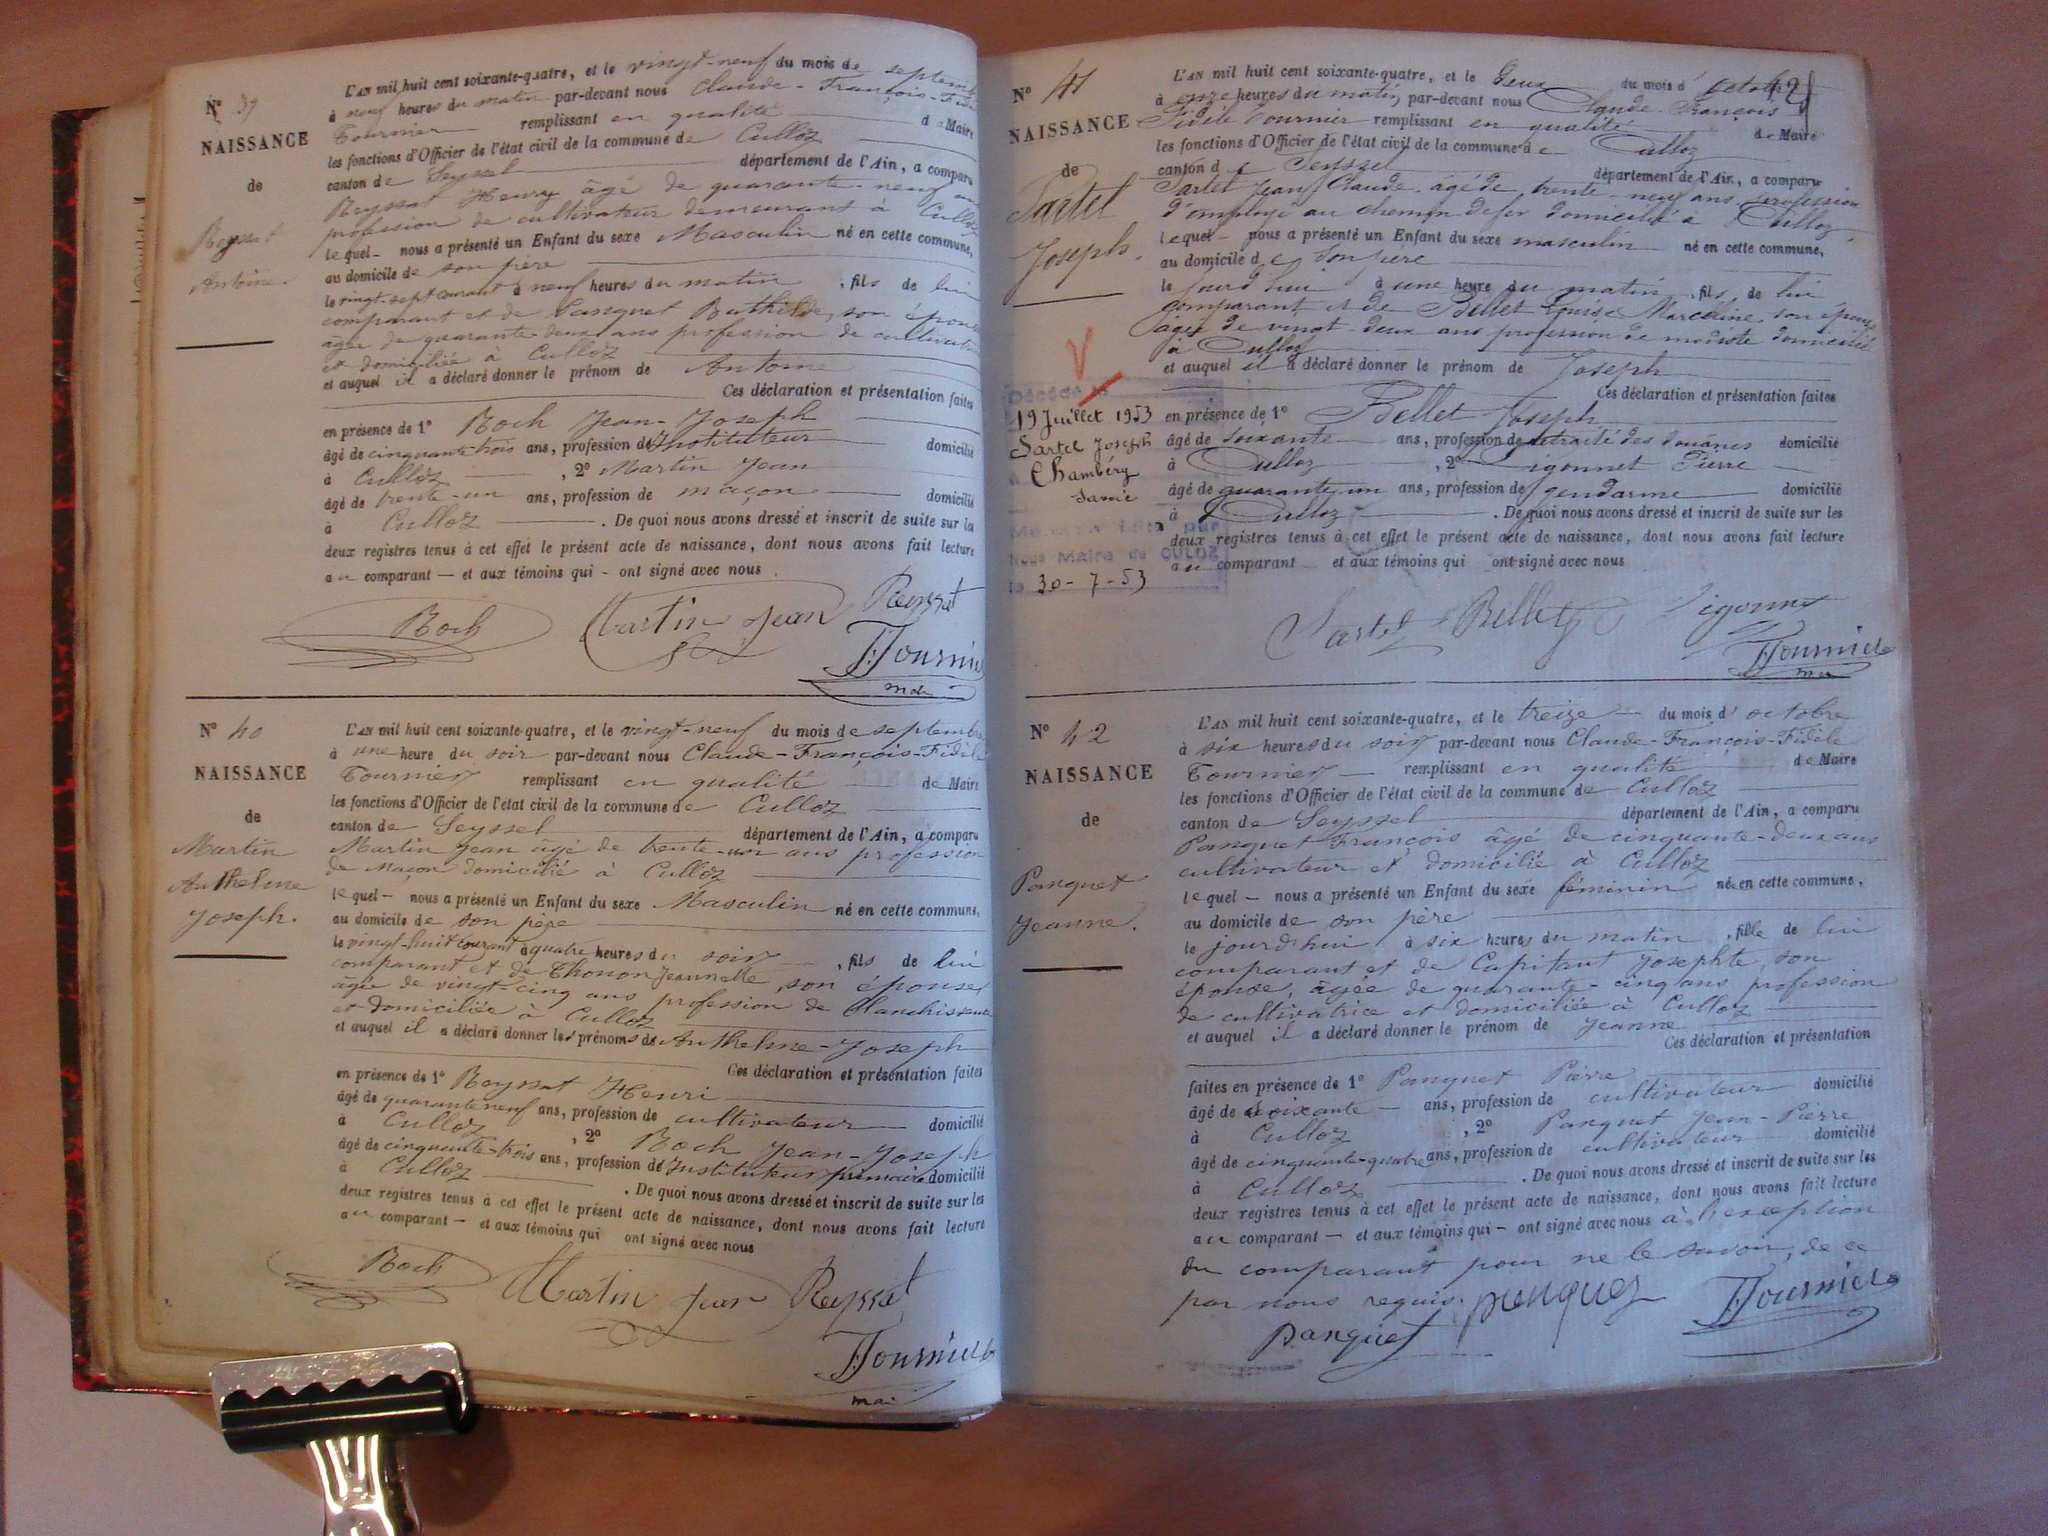 N° 39
NAISSANCE
de
Reyssat
Antoine.
L'AN mil huit cent soixante-quatre, et le vingt-neuf du mois de septembre
à neuf heures du matin par-devant nous Claude-François-Fidèle
Tournier remplissant en qualité de Maire
les fonctions d'Officier de l'état civil de la commune de Culloz
canton de Seyssel département de l'Ain, a comparu
Reyssat Henry âgé de quarante-neuf ans
profession de cultivateur demeurant à Culloz
lequel nous a présenté un Enfant du sexe Masculin né en cette commune,
au domicile de son père
le vingt-sept courant à neuf heures du matin, fils de lui
comparant et de Panquet Bathilde, son épouse
âgée de quarante-deux ans profession de cultivatrice
et domiciliée à Culloz
et auquel il a déclaré donner le prénom de Antoine
Ces déclaration et présentation faites
en présence de 1° Roch Jean-Joseph
âgé de cinquante trois ans, profession de Instituteur domicilié
à Culloz, 2° Martin Jean
âgé de trente-un ans, profession de maçon domicilié
à Culloz. De quoi nous avons dressé et inscrit de suite sur les
deux registres tenus à cet effet le présent acte de naissance, dont nous avons fait lecture
au comparant — et aux témoins qui - ont signé avec nous.
Roch Martin Jean Reyssat
Tournier
N° 40
NAISSANCE
de
Martin
Anthelme
Joseph.
L'AN mil huit cent soixante-quatre, et le vingt-neuf du mois de septembre
à une heure du soir par-devant nous Claude-François-Fidèle
Tournier remplissant en qualité de Maire
les fonctions d'Officier de l'état civil de la commune de Culloz
canton de Seyssel département de l'Ain, a comparu
Martin Jean âgé de trente-un ans profession
de maçon domicilié à Culloz
lequel - nous a présenté un Enfant du sexe Masculin né en cette commune,
au domicile de son père
le vingt-huit courant à quatre heures du soir, fils de lui
comparant et de Thonon Jeannette, son épouse,
âgée de vingt cinq ans profession de blanchisseuse
et domiciliée à Culloz
et auquel il a déclaré donner les prénoms de Anthelme-Joseph
Ces déclaration et présentation faites
en présence de 1° Reyssat Henri
âgé de quarante neuf ans, profession de cultivateur domicilié
à Culloz, 2° Roch Jean-Joseph
âgé de cinquante-trois ans, profession de Instituteur primaire domicilié
à Culloz. De quoi nous avons dressé et inscrit de suite sur les
deux registres tenus à cet effet le présent acte de naissance, dont nous avons fait lecture
au comparant — et aux témoins qui ont signé avec nous
Roch Martin Jean Reyssat
Tournier
N° 41
NAISSANCE
de
Sartel
Joseph.
42
L'AN mil huit cent soixante-quatre, et le deux du mois d'octobre
à onze heures du matin, par-devant nous Claude François
Fidèle Tournier remplissant en qualité de Maire
les fonctions d'Officier de l'état civil de la commune de Culloz
canton de Seyssel département de l'Ain, a comparu
Sartel Jean Claude âgé de trente-neuf ans profession
d'employé au chemin de fer domicilié à Culloz,
lequel - nous a présenté un Enfant du sexe masculin né en cette commune,
au domicile de son père
le jourd'hui à une heure du matin, fils de lui
comparant et de Bellet Louise Marceline son épouse
âgée de vingt-deux ans profession de modiste domiciliée
à Culloz
et auquel il a déclaré donner le prénom de Joseph
Ces déclaration et présentation faites
en présence de 1° Bellet Joseph
âgé de soixante ans, profession de retraité des douanes domicilié
à Culloz, 2° Ligonnet Pierre
âgé de quarante un ans, profession de gendarme domicilié
à Culloz. De quoi nous avons dressé et inscrit de suite sur les
deux registres tenus à cet effet le présent acte de naissance, dont nous avons fait lecture
au comparant et aux témoins qui ont signé avec nous
Sartel Bellet Ligonnet
Tournier
V
Décédé le
19 Juillet 1953
Sartel Joseph
à Chambéry
Savoie
Mention faite par
Nous Maire de CULOZ
le 30-7-53
N° 42
NAISSANCE
de
Panquet
Jeanne.
L'AN mil huit cent soixante-quatre, et le treize du mois d'octobre
à six heures du soir par-devant nous Claude-François-Fidèle
Tournier — remplissant en qualité de Maire
les fonctions d'Officier de l'état civil de la commune de Culloz
canton de Seyssel département de l'Ain, a comparu
Panquet François âgé de cinquante-deux ans
cultivateur et domicilié à Culloz
lequel - nous a présenté un Enfant du sexe féminin né en cette commune,
au domicile de son père
le jourd'hui à six heures du matin, fille de lui
comparant et de Capitant Josephte, son
épouse, âgée de quarante-cinq ans profession
de cultivatrice et domiciliée à Culloz
et auquel il a déclaré donner le prénom de Jeanne
Ces déclaration et présentation
faites en présence de 1° Panquet Pierre
âgé de soixante ans, profession de cultivateur domicilié
à Culloz, 2° Panquet Jean-Pierre
âgé de cinquante-quatre ans, profession de cultivateur domicilié
à Culloz. De quoi nous avons dressé et inscrit de suite sur les
deux registres tenus à cet effet le présent acte de naissance, dont nous avons fait lecture
au comparant — et aux témoins qui - ont signé avec nous à l'exception
du comparant pour ne le savoir, de ce
par nous requis. panquet Tournier
panquet